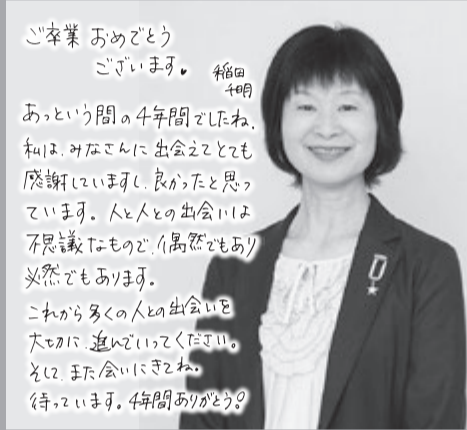 ご卒業 おめでとう
ございます。
稲田
千明
あっという間の4年間でしたね。
私は、みなさんに出会えてとても
感謝していますし、良かったと思っ
ています。人と人との出会いは
不思議なもので、偶然でもあり
必然でもあります。
これから多くの人との出会いを
大切に、進んでいってください。
そして、また会いにきてね。
待っています。4年間ありがとう!